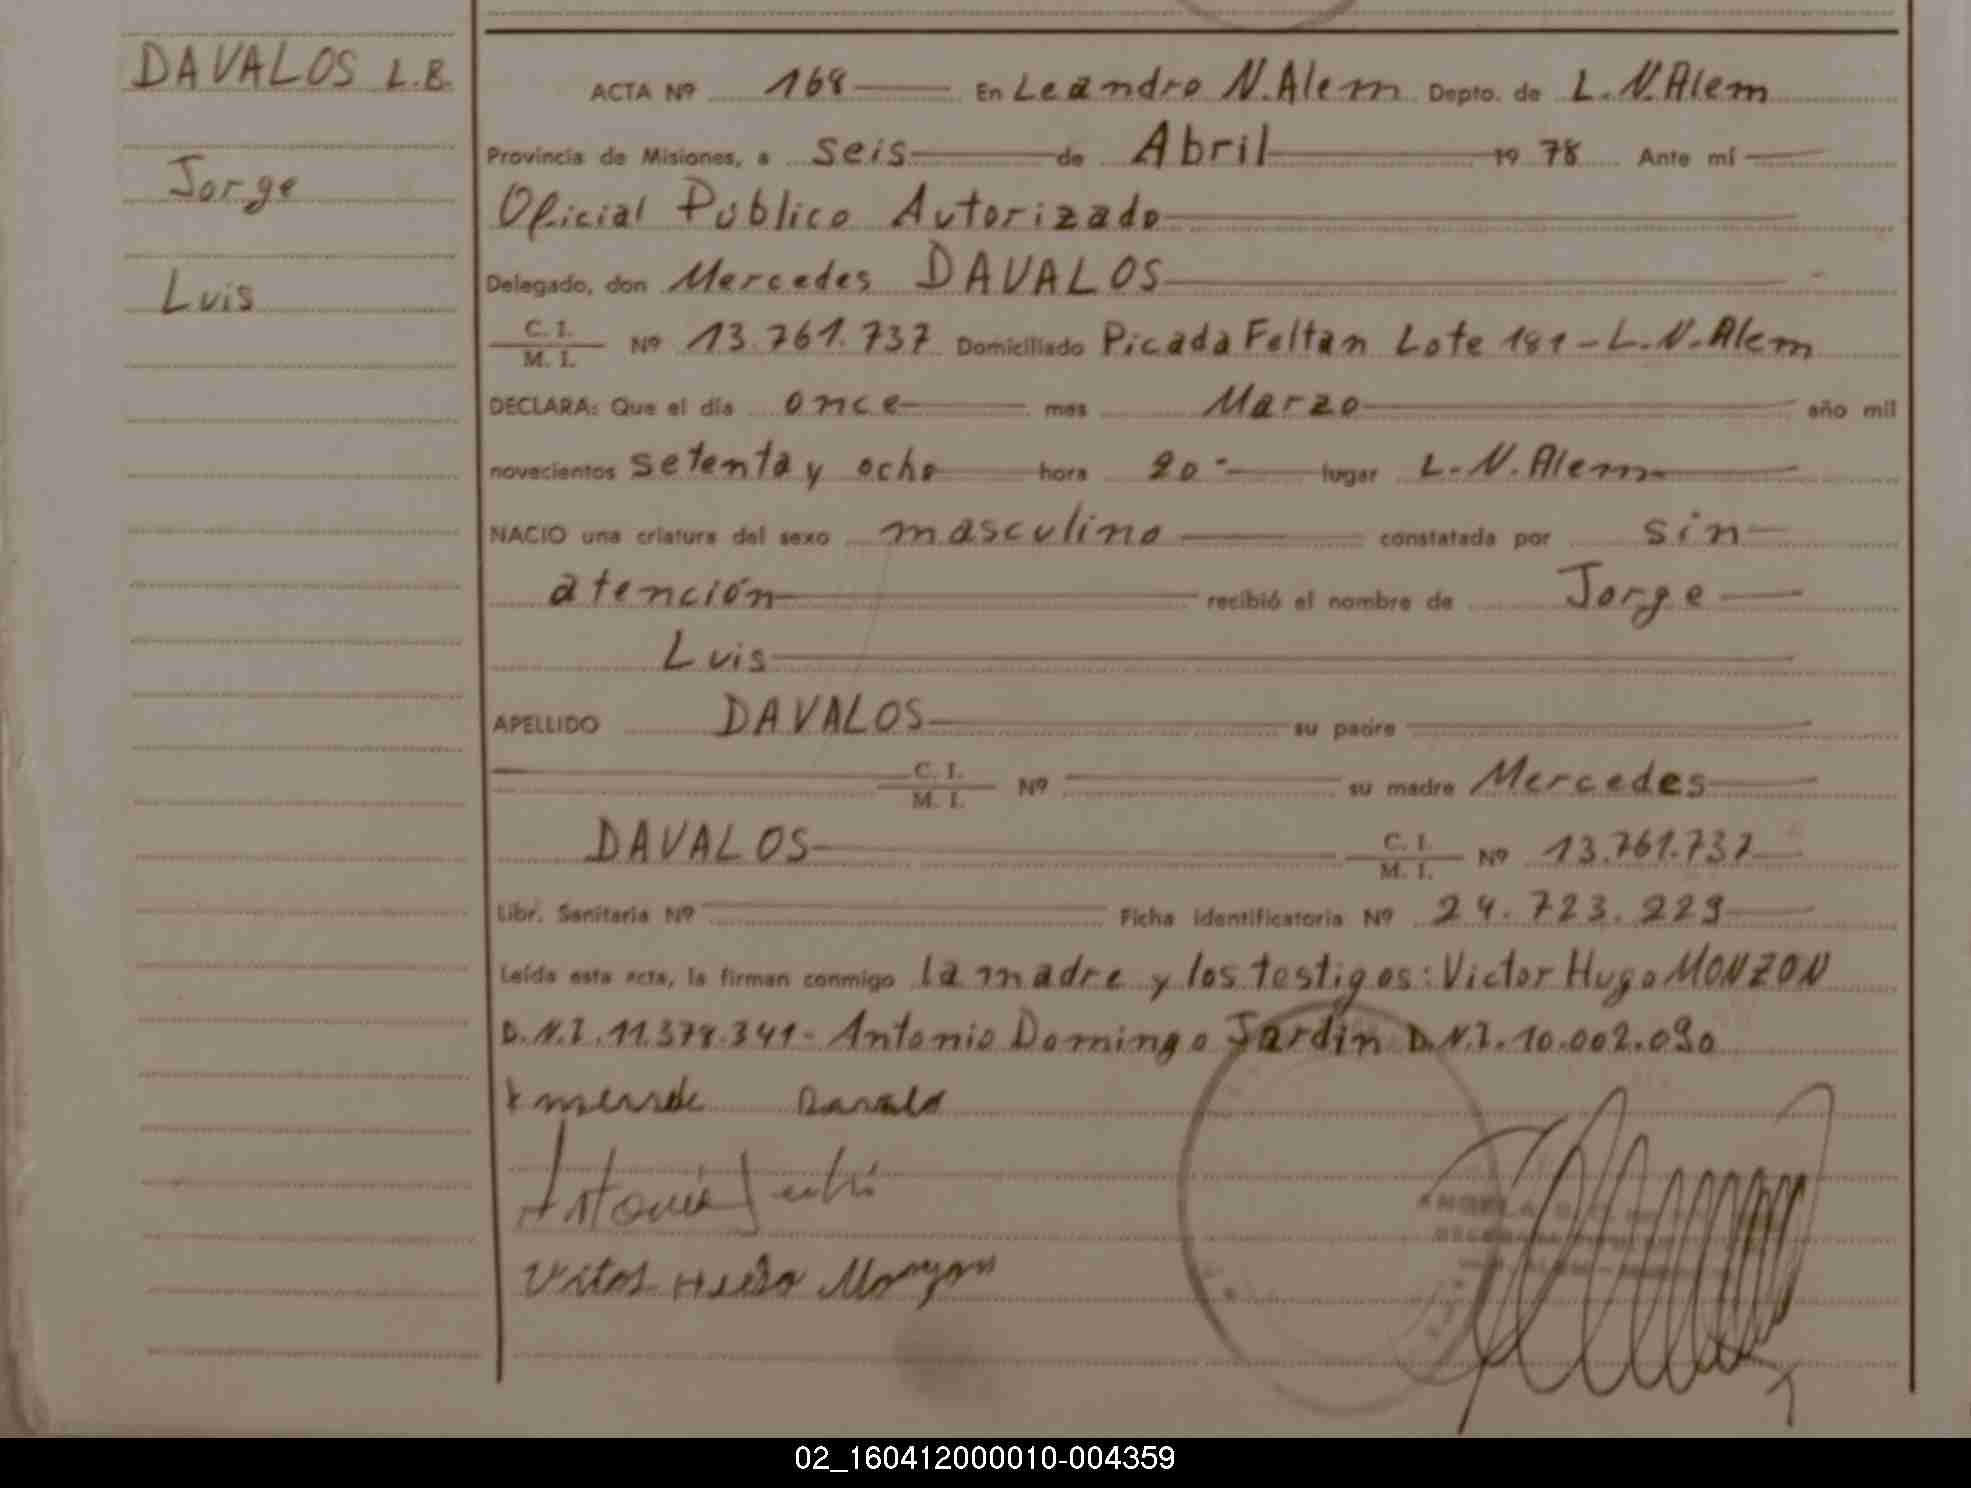 DAVALOS L.E.
Jorge
Luis
ACTA Nº 168 En Leandro N. Alem Depto. de L. N. Alem
Provincia de Misiones, a seis de Abril 19 78 Ante mí
Oficial Público Autorizado
Delegado, don Mercedes DAVALOS
C. I.
M. I. Nº 13.761.737 Domiciliado Picada Feltan Lote 181 - L. N. Alem
DECLARA: Que el día once mes Marzo año mil
novecientos setenta y ocho hora 20 - lugar L. N. Alem
NACIO una criatura del sexo masculino constatada por sin
atención recibió el nombre de Jorge
Luis
APELLIDO DAVALOS su padre
C. I.
M. I. Nº su madre Mercedes
DAVALOS C. I.
M. I. Nº 13.761.737
Libr. Sanitaria Nº Ficha identificatoria Nº 24.723.229
Leída esta acta, la firman conmigo la madre y los testigos: Victor Hugo MONZON
D.N.I. 11.378.341 - Antonio Domingo Jardin D.N.I. 10.002.090
02_160412000010-004359